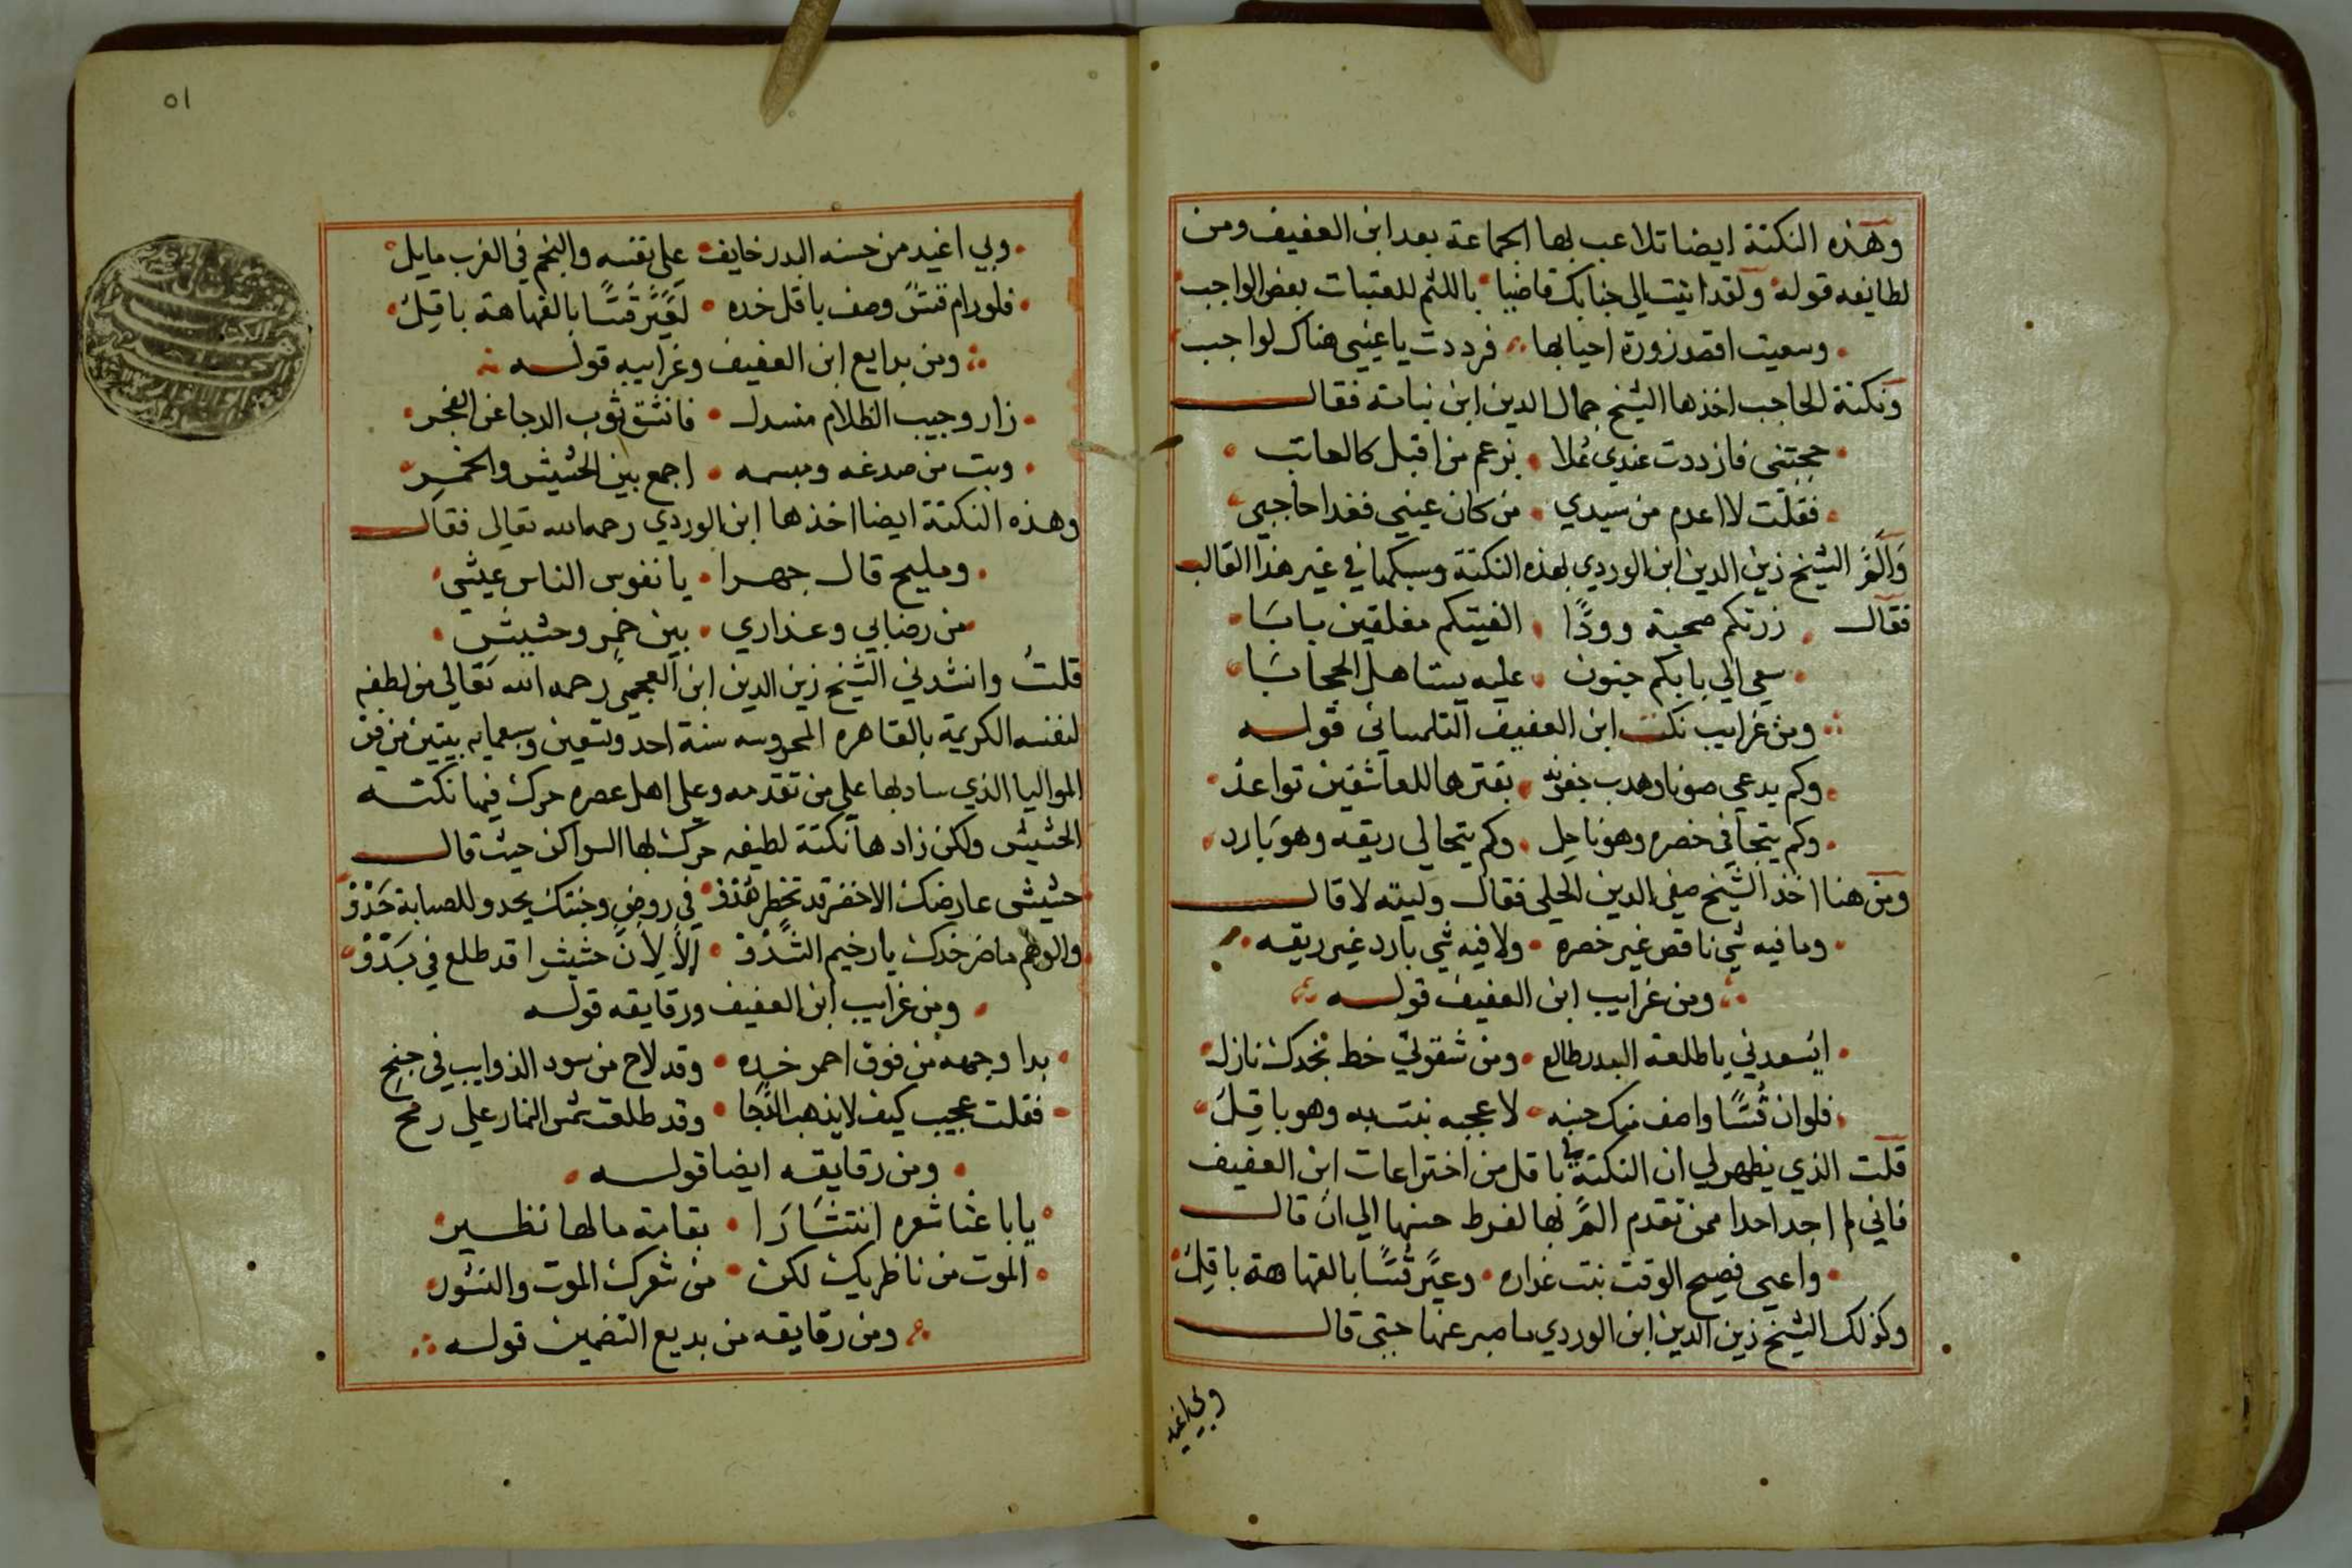 وهذه النكتة ايضا تلاعب بها الجماعة بعد ابن العفيف ومن
لطايفه قوله ولقد اتيت الي جنابك قاضيا باللثم للعتبات بعض الواجب
وسعيت اقصد زورة احيا بها فرددت يا عيني هناك لواجب
ونكتة الحاجب اخذها الشيخ جمال الدين ابن نباتة فقال
حجبتني فازددت عندي علا بزعم من اقبل كالعاتب
فقلت لا اعدم من سيدي من كان عيني فغدا حاجبي
والم الشيخ زين الدين ابن الوردي بهذه النكتة وسبكها في غير هذا القالب
فقال زرتكم صحبة وودا الفيتكم مغلقين بابا
سعي الي بابكم جنون عليه يستاهل الحجابا
ومن غرايب نكت ابن العفيف التلمساني قوله
وكم يدعي صونا وهدب جفونه بفترها للعاشقين تواعد
وكم يتجافي خصره وهو ناحل وكم يتحالي ريقه وهو بارد
ومن هنا اخذ الشيخ صفي الدين الحلي فقال وليته لا قال
وما فيه شي ناقص غير خصره ولا فيه شي بارد غير ريقه
ومن غرايب ابن العفيف قوله
ايسعدني يا طلعة البدر طالع ومن شقوتي خط بخدك نازل
فلو ان قسا واصف منك حبنه لاعجبه نبت به وهو باقل
قلت الذي يظهر لي ان النكتة في باقل من اختراعات ابن العفيف
فاني لم اجد احدا ممن تقدم الم بها لفرط حسنها الي ان قال
واعيي فصيح الوقت نبت عذاره وعير قسا بالفهاهة باقل
وكذلك الشيخ زين الدين ابن الوردي ما صبر عنها حتى قال
وبي اغيد
٥١
وبي اغيد من حسنه البدر خايف علي نفسه والنجم في الغرب مايل
فلو رام قس وصف باقل خده لعير قسا بالفهاهة باقل
ومن بدايع ابن العفيف وغرايبه قوله
زار وجيب الظلام منسدل فانشق ثوب الدجا عن الفجر
وبت من صدغه ومبسمه اجمع بين الحشيش والخمر
وهذه النكتة ايضا اخذها ابن الوردي رحمه الله تعالى فقال
ومليح قال جهرا يا نفوس الناس عيشي
من رضابي وعذاري بين خمر وحشيش
قلت وانشدني الشيخ زين الدين ابن العجمي رحمه الله تعالي من لطفه
لنفسه الكريمة بالقاهره المحروسه سنة احد وتسعين وسبعمايه بيتين من فن
المواليا الذي ساد بها علي من تقدمه وعلي اهل عصره حرك فيها نكتة
الحشيش ولكن زادها نكتة لطيفه حرك بها السواكن حيث قال
حشيش عارضك الاخضر قد تخطر هذو في روض وجنتك يحدو للصبابة حدو
والوهم ما ضر خدك يا رخيم الشدو الا لان حشيشا قد طلع في بدو
ومن غرايب ابن العفيف ورقايقه قوله
بدا وجهه من فوق احمر خده وقد لاح من سود الذوايب في جنح
فقلت عجيب كيف لا يذهب الدجا وقد طلعت شمس النهار علي رمح
ومن رقايقه ايضا قوله
يا باعثا شعره انتشارا بقامة ما لها نظير
الموت من ناظريك لكن من شعرك الموت والنشور
ومن رقايقه من بديع التضمين قوله